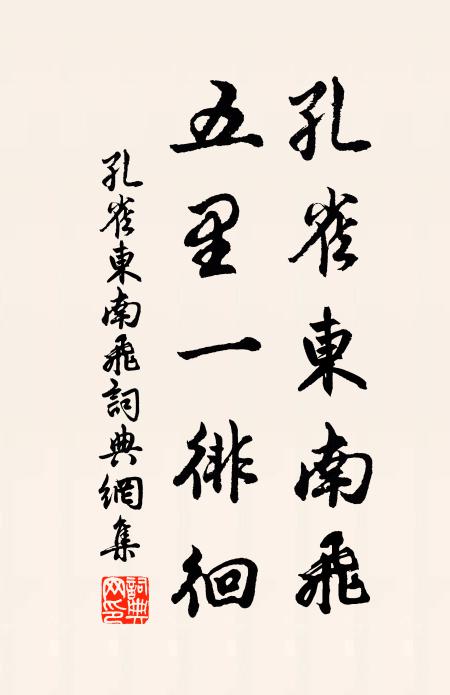 孔雀東南飛
五里一徘徊
孔雀東南飛詞典網集
詞典網印